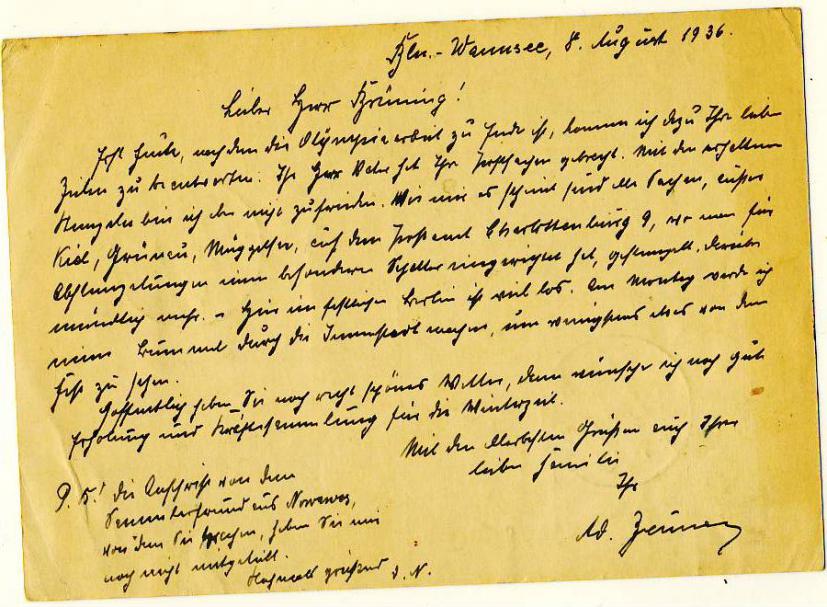 Bln.-Wannsee, 8. August 1936.
Lieber Herr Brüning!
Erst heute, nachdem die Olympiaarbeit zu Ende ist, komme ich dazu Ihre lieben
Zeilen zu beantworten. Ihr Herr Vater hat Ihre Postsachen gebracht. Mit den erhaltenen
Stempeln bin ich nicht zufrieden. Wie mir es scheint sind alle Sachen, außer
Kiel, Grünau, Müggelsee, auf dem Postamt Charlottenburg 9, wo man für
Abstempelungen einen besonderen Schalter eingerichtet hat, gestempelt. Darüber
mündlich mehr. – Hier im festlichen Berlin ist viel los. Am Montag werde ich
einen Bummel durch die Innenstadt machen, um wenigstens etwas von dem
Fest zu sehen.
Hoffentlich haben Sie noch recht schönes Wetter, dann wünsche ich noch gute
Erholung und Kräftesammlung für die Winterzeit.
Mit den allerbesten Grüßen auch Ihrer
lieben Familie
Ihr
Ad.
P.S.! Die Anschrift von dem
Sammlerfreund aus Nowawes,
von dem Sie sprachen, haben Sie mir
noch nicht mitgeteilt.
Hochmals grüßend